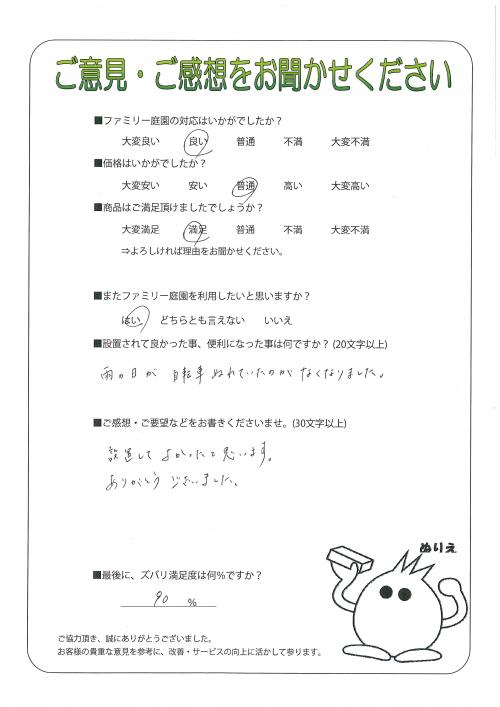 ご意見・ご感想をお聞かせください
■ファミリー庭園の対応はいかがでしたか？
大変良い 良い 普通 不満 大変不満
■価格はいかがでしたか？
大変安い 安い 普通 高い 大変高い
■商品はご満足頂けましたでしょうか？
大変満足 満足 普通 不満 大変不満
⇒よろしければ理由をお聞かせください。
■またファミリー庭園を利用したいと思いますか？
はい どちらとも言えない いいえ
■設置されて良かった事、便利になった事は何ですか？(20文字以上)
雨の日が 自転車 ぬれていたのが なくなりました。
■ご感想・ご要望などをお書きくださいませ。(30文字以上)
設置して よかったと思います。
ありがとう ございました。
ぬりえ
■最後に、ズバリ満足度は何％ですか？
90 %
ご協力頂き、誠にありがとうございました。
お客様の貴重な意見を参考に、改善・サービスの向上に活かして参ります。